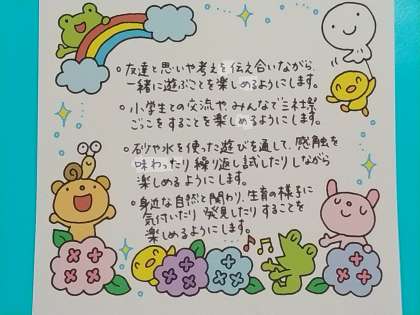 •友達と思いや考えを伝え合いながら、
一緒に遊ぶことを楽しめるようにします。
•小学生との交流や、みんなで三社祭
ごっこをすることを楽しめるようにします。
•砂や水を使った遊びを通して、感触を
味わったり繰り返し試したりしながら
楽しめるようにします。
•身近な自然と関わり、生育の様子に
気付いたり発見したりすることを
楽しめるようにします。